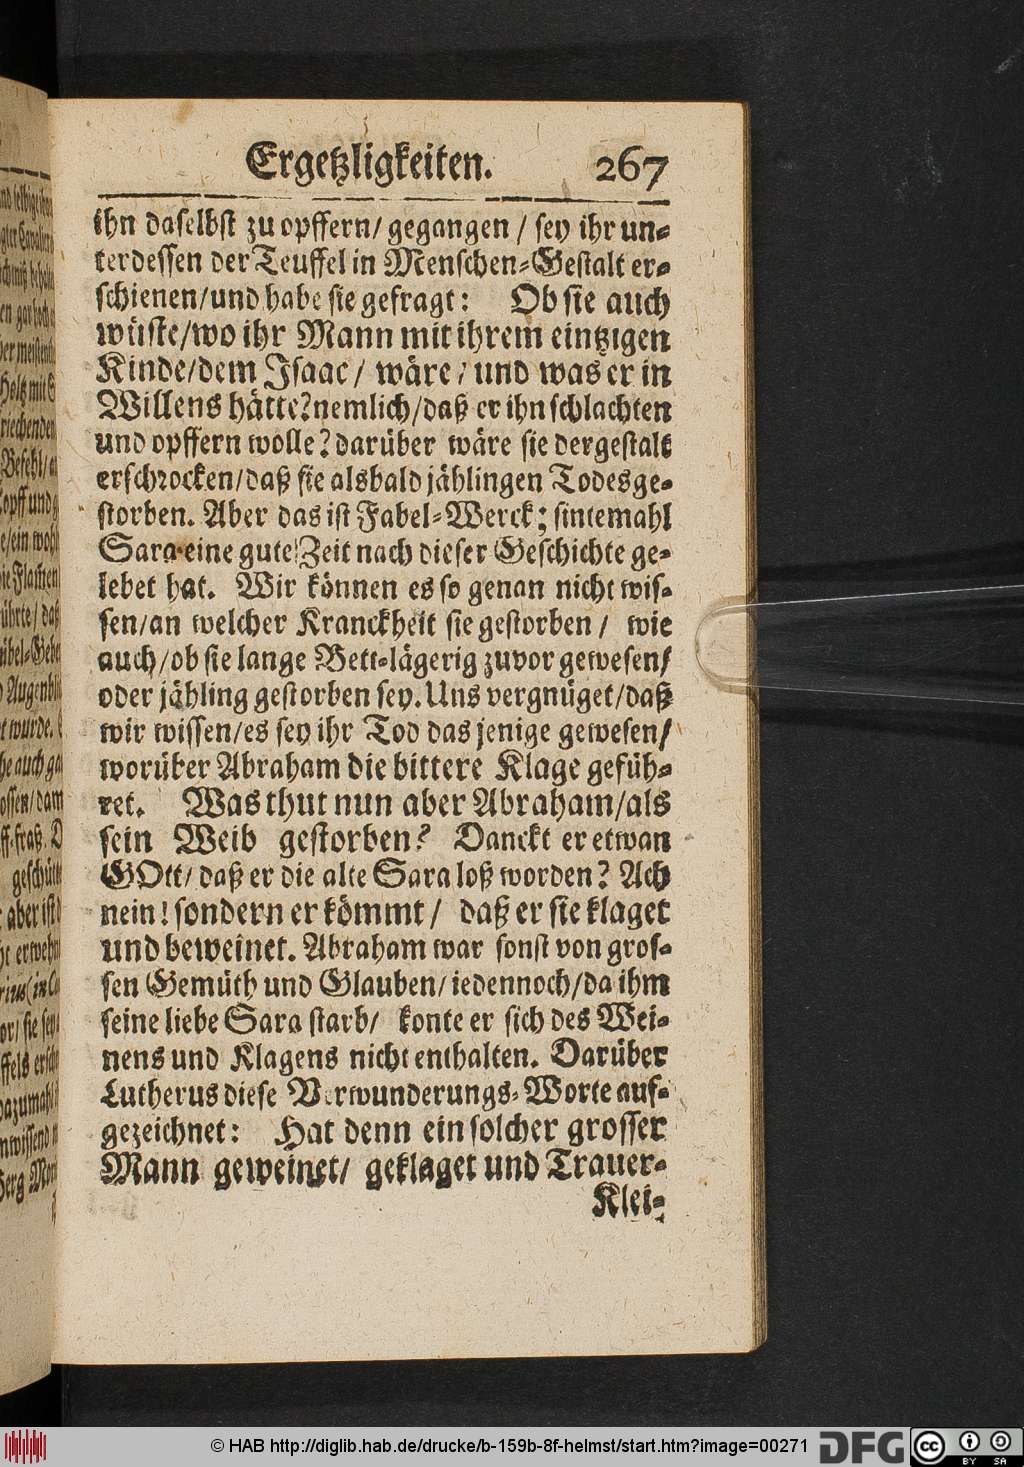 Ergetzligkeiten. 267
ihn daselbst zu opffern/ gegangen / sey ihr un-
terdessen der Teuffel in Menschen-Gestalt er-
schienen/und habe sie gefragt: Ob sie auch
wüste/wo ihr Mann mit ihrem eintzigen
Kinde/dem Isaac/ wäre/ und was er in
Willens hätte? nemlich/daß er ihn schlachten
und opffern wolle? darüber wäre sie dergestalt
erschrocken/daß sie alsbald jählingen Todes ge-
storben. Aber das ist Fabel-Werck; sintemahl
Sara eine gute Zeit nach dieser Geschichte ge-
lebet hat. Wir können es so genan nicht wis-
sen/an welcher Kranckheit sie gestorben/ wie
auch/ob sie lange Bett-lägerig zuvor gewesen/
oder jähling gestorben sey. Uns vergnüget/daß
wir wissen/es sey ihr Tod das jenige gewesen/
worüber Abraham die bittere Klage gefüh-
ret. Was thut nun aber Abraham/als
sein Weib gestorben? Danckt er etwan
GOtt/ daß er die alte Sara loß worden? Ach
nein! sondern er kömmt/ daß er sie klaget
und beweinet. Abraham war sonst von gros-
sen Gemüth und Glauben/ iedennoch/da ihm
seine liebe Sara starb/ konte er sich des Wei-
nens und Klagens nicht enthalten. Darüber
Lutherus diese Verwunderungs-Worte auf-
gezeichnet: Hat denn ein solcher grosser
Mann geweinet/ geklaget und Trauer-
Klei-
© HAB http://diglib.hab.de/drucke/b-159b-8f-helmst/start.htm?image=00271
DFG
cc
BY SA